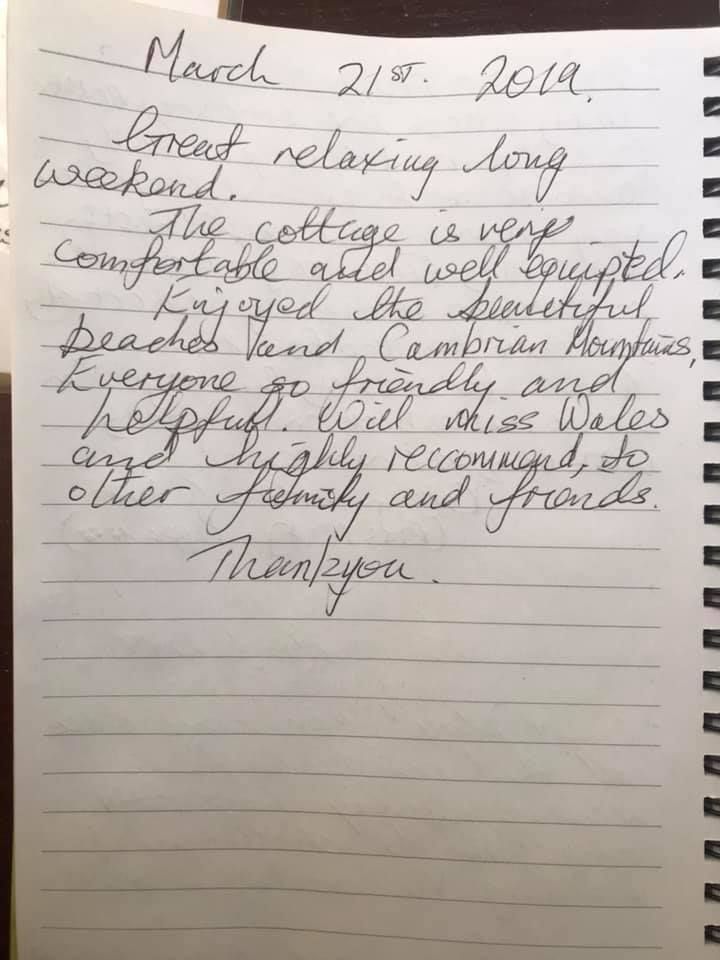 March 21ST. 2019.
Great relaxing long
weekend.
The cottage is very
comfortable and well equipted.
Enjoyed the beautiful
beaches and Cambrian Mountains,
Everyone so friendly and
helpfull. Will miss Wales
and highly reccommend, to
other family and friends.
Thankyou.